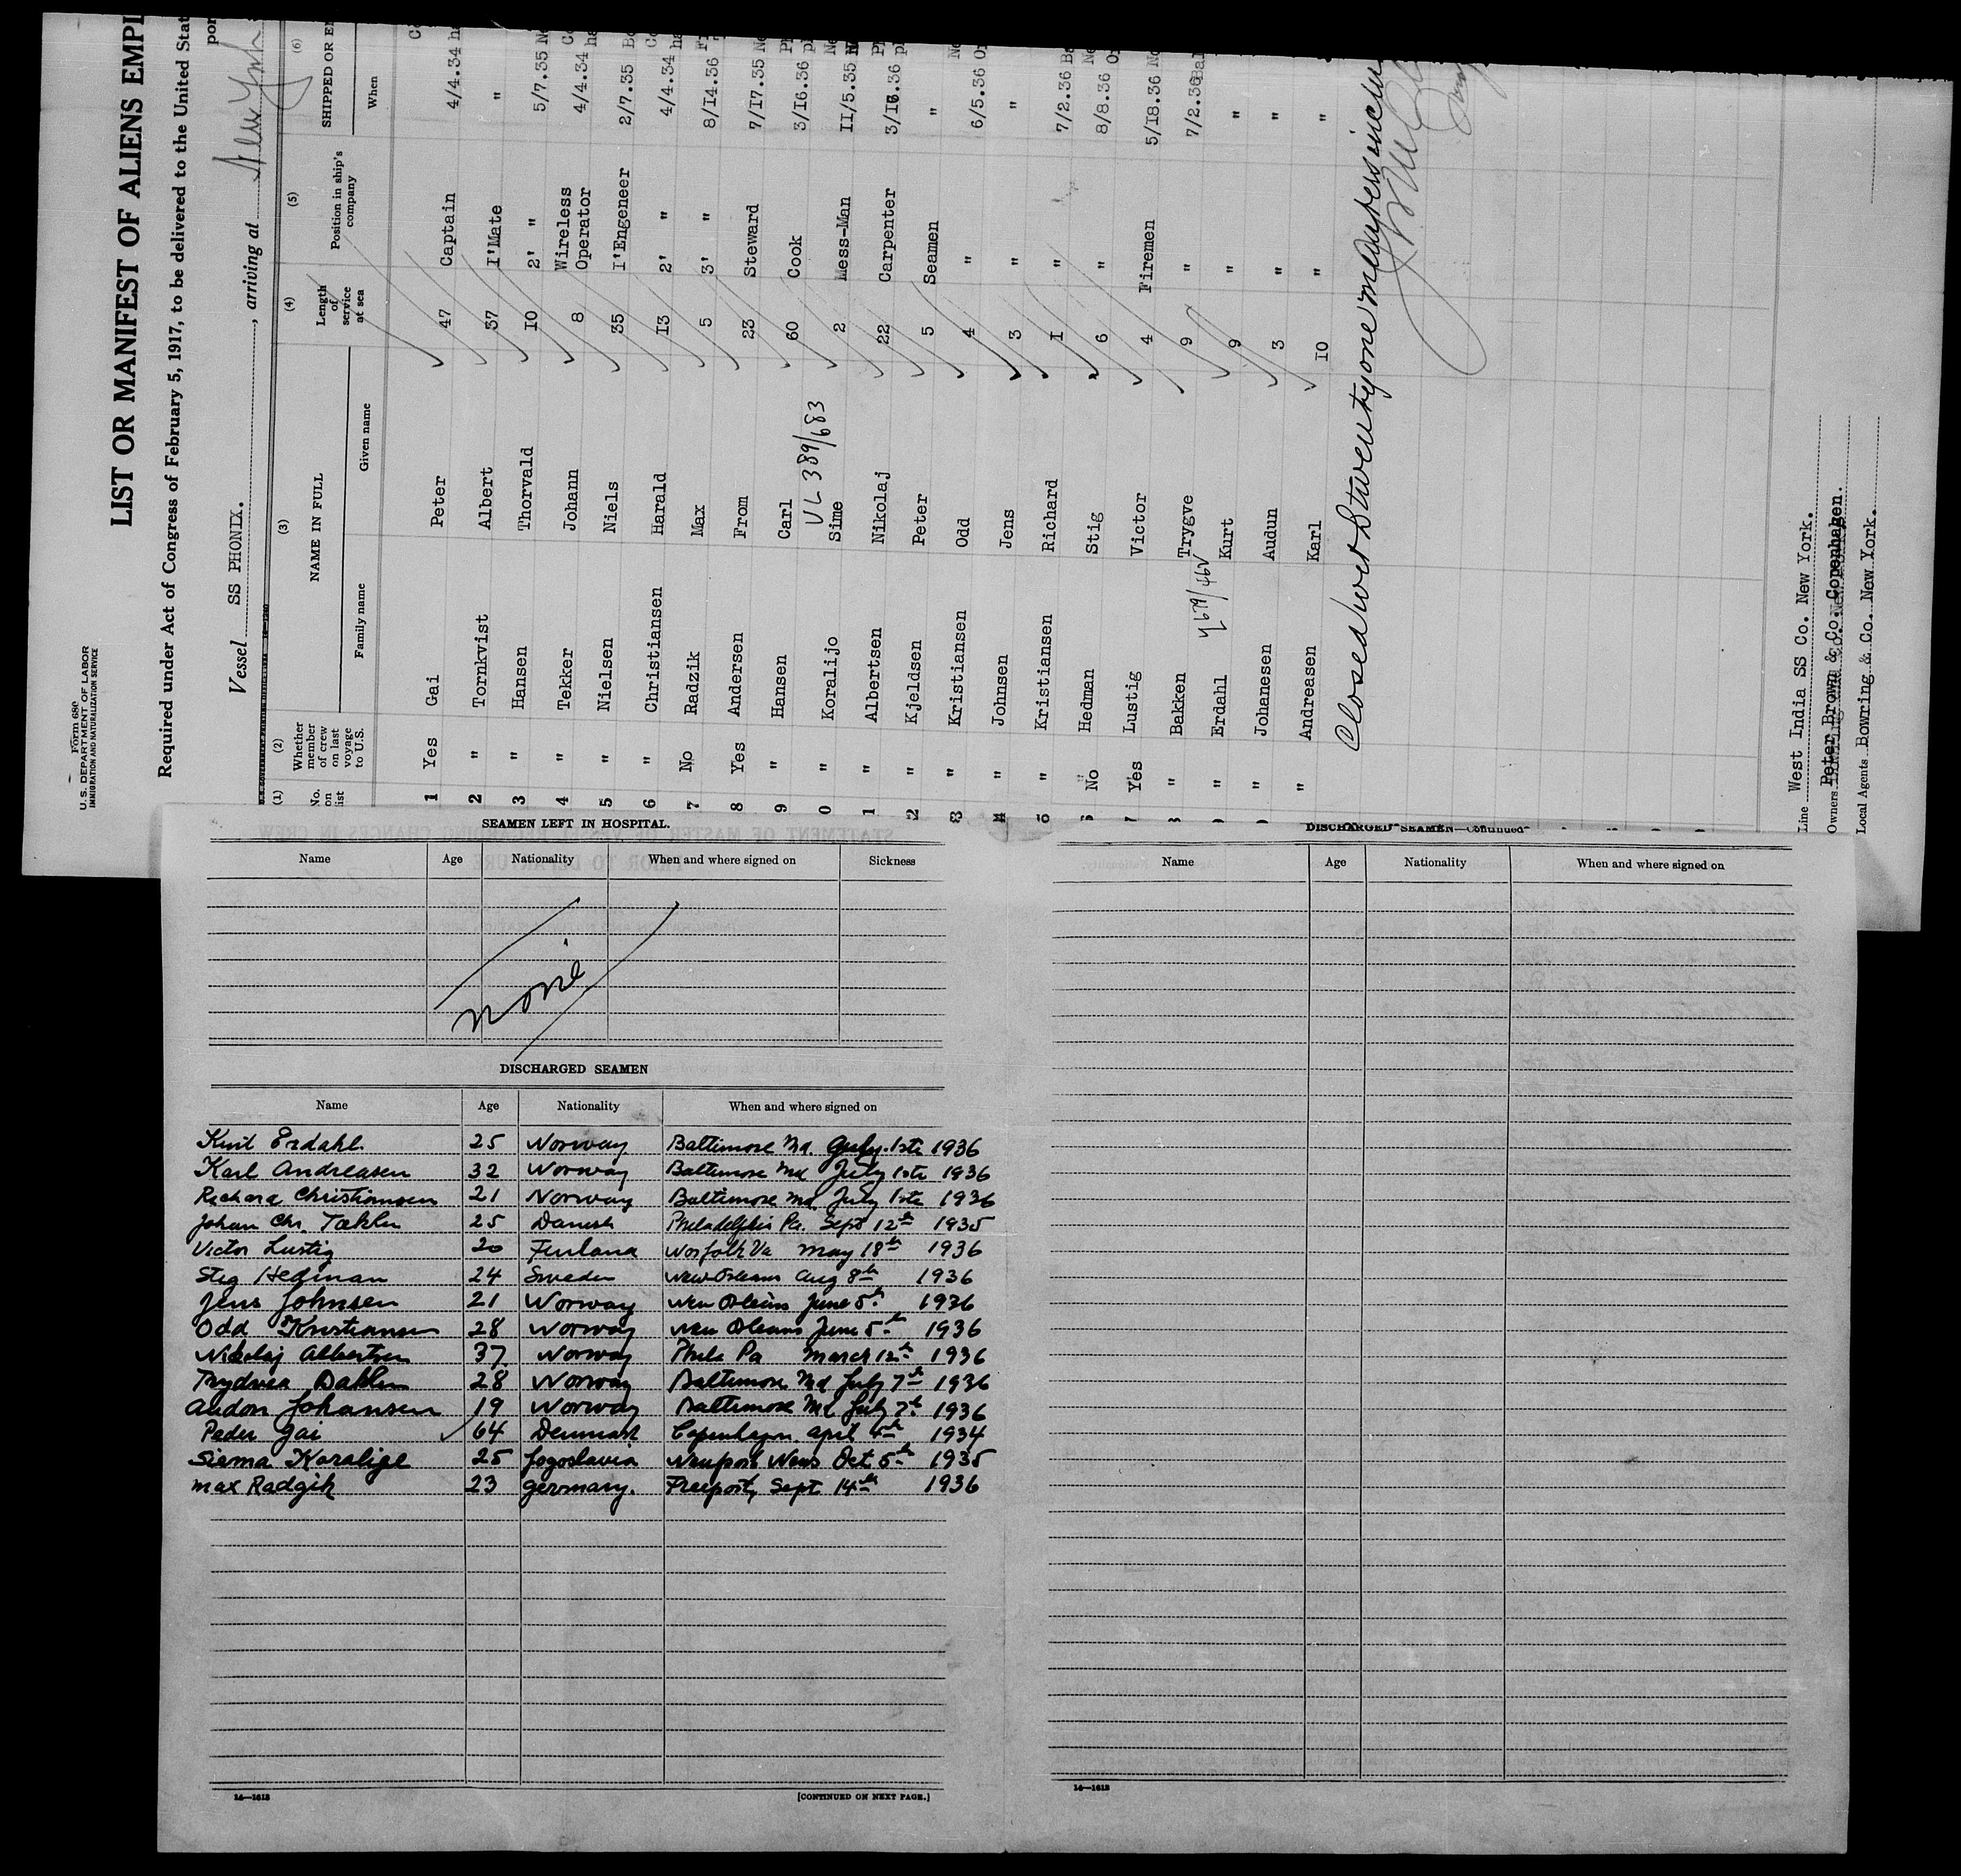 Form 680
U.S. DEPARTMENT OF LABOR
IMMIGRATION AND NATURALIZATION SERVICE
LIST OR MANIFEST OF ALIENS EMPL
Required under Act of Congress of February 5, 1917, to be delivered to the United Stat
por
Vessel SS PHONIX. , arriving at New York
(1) (2) (3) (4) (5) (6)
No. on list Whether member of crew on last voyage to U.S. NAME IN FULL Length of service at sea Position in ship's company SHIPPED OR EN
Family name Given name When
1 Yes Gai Peter 47 Captain 4/4.34 ha
2 " Tornkvist Albert 37 I'Mate "
3 " Hansen Thorvald 10 2' " 5/7.35 Ne
4 " Tekker Johann 8 Wireless Operator 4/4.34 ha
5 " Nielsen Niels 35 I'Engeneer 2/7.35 Bo
6 " Christiansen Harald 13 2' " 4/4.34 ha
7 No Radzik Max 5 3' " 8/14.36 Fr
8 Yes Andersen From 23 Steward 7/17.35 Ne
9 " Hansen Carl 60 Cook 3/16.36 pl
VL 389/683
0 " Koralijo Sime 2 Mess-Man 11/5.35 N
1 " Albertsen Nikolaj 22 Carpenter 3/16.36 pl
2 " Kjeldsen Peter 5 Seamen "
3 " Kristiansen Odd 4 " 6/5.36 Or
4 " Johnsen Jens 3 " "
5 " Kristiansen Richard 1 " 7/2.36 Ba
6 No Hedman Stig 6 " 8/8.36 Or
7 Yes Lustig Victor 4 Firemen 5/18.36 No
8 " Bakken Trygve 9 " 7/2.36 Bal
9 " Erdahl Kurt 9 " "
" Johanesen Audun 3 " "
" Andreasen Karl 10 " "
Closed with twenty one members inclu
Line West India SS Co. New York.
Owners Peter Brown & Co. Copenhagen.
Local Agents Bowring & Co. New York.
SEAMEN LEFT IN HOSPITAL.
Name Age Nationality When and where signed on Sickness
none
DISCHARGED SEAMEN
Name Age Nationality When and where signed on
Kurt Erdahl 25 Norway Baltimore Md. July 1ste 1936
Karl Andreasen 32 Norway Baltimore Md July 1ste 1936
Richard Christiansen 21 Norway Baltimore Md July 1ste 1936
Johan Chr. Takker 25 Danish Philadelphia Pa. Sept 12th 1935
Victor Lustig 20 Finland Norfolk Va May 18th 1936
Stig Hedman 24 Sweden New Orleans Aug 8th 1936
Jens Johnsen 21 Norway New Orleans June 5th 1936
Odd Kristiansen 28 Norway New Orleans June 5th 1936
Nikolaj Albertsen 37 Norway Phila Pa March 12th 1936
28 Norway Baltimore Md July 7th 1936
Audon Johansen 19 Norway Baltimore Md July 7th 1936
Peder Gai 64 Denmark Copenhagen April 4th 1934
Siema Koralije 25 Jogoslavia Newport News Oct 5th 1935
Max Radzik 23 Germany. Freeport, Sept 14th 1936
14—1613
[CONTINUED ON NEXT PAGE.]
DISCHARGED SEAMEN—Continued
Name Age Nationality When and where signed on
14—1613